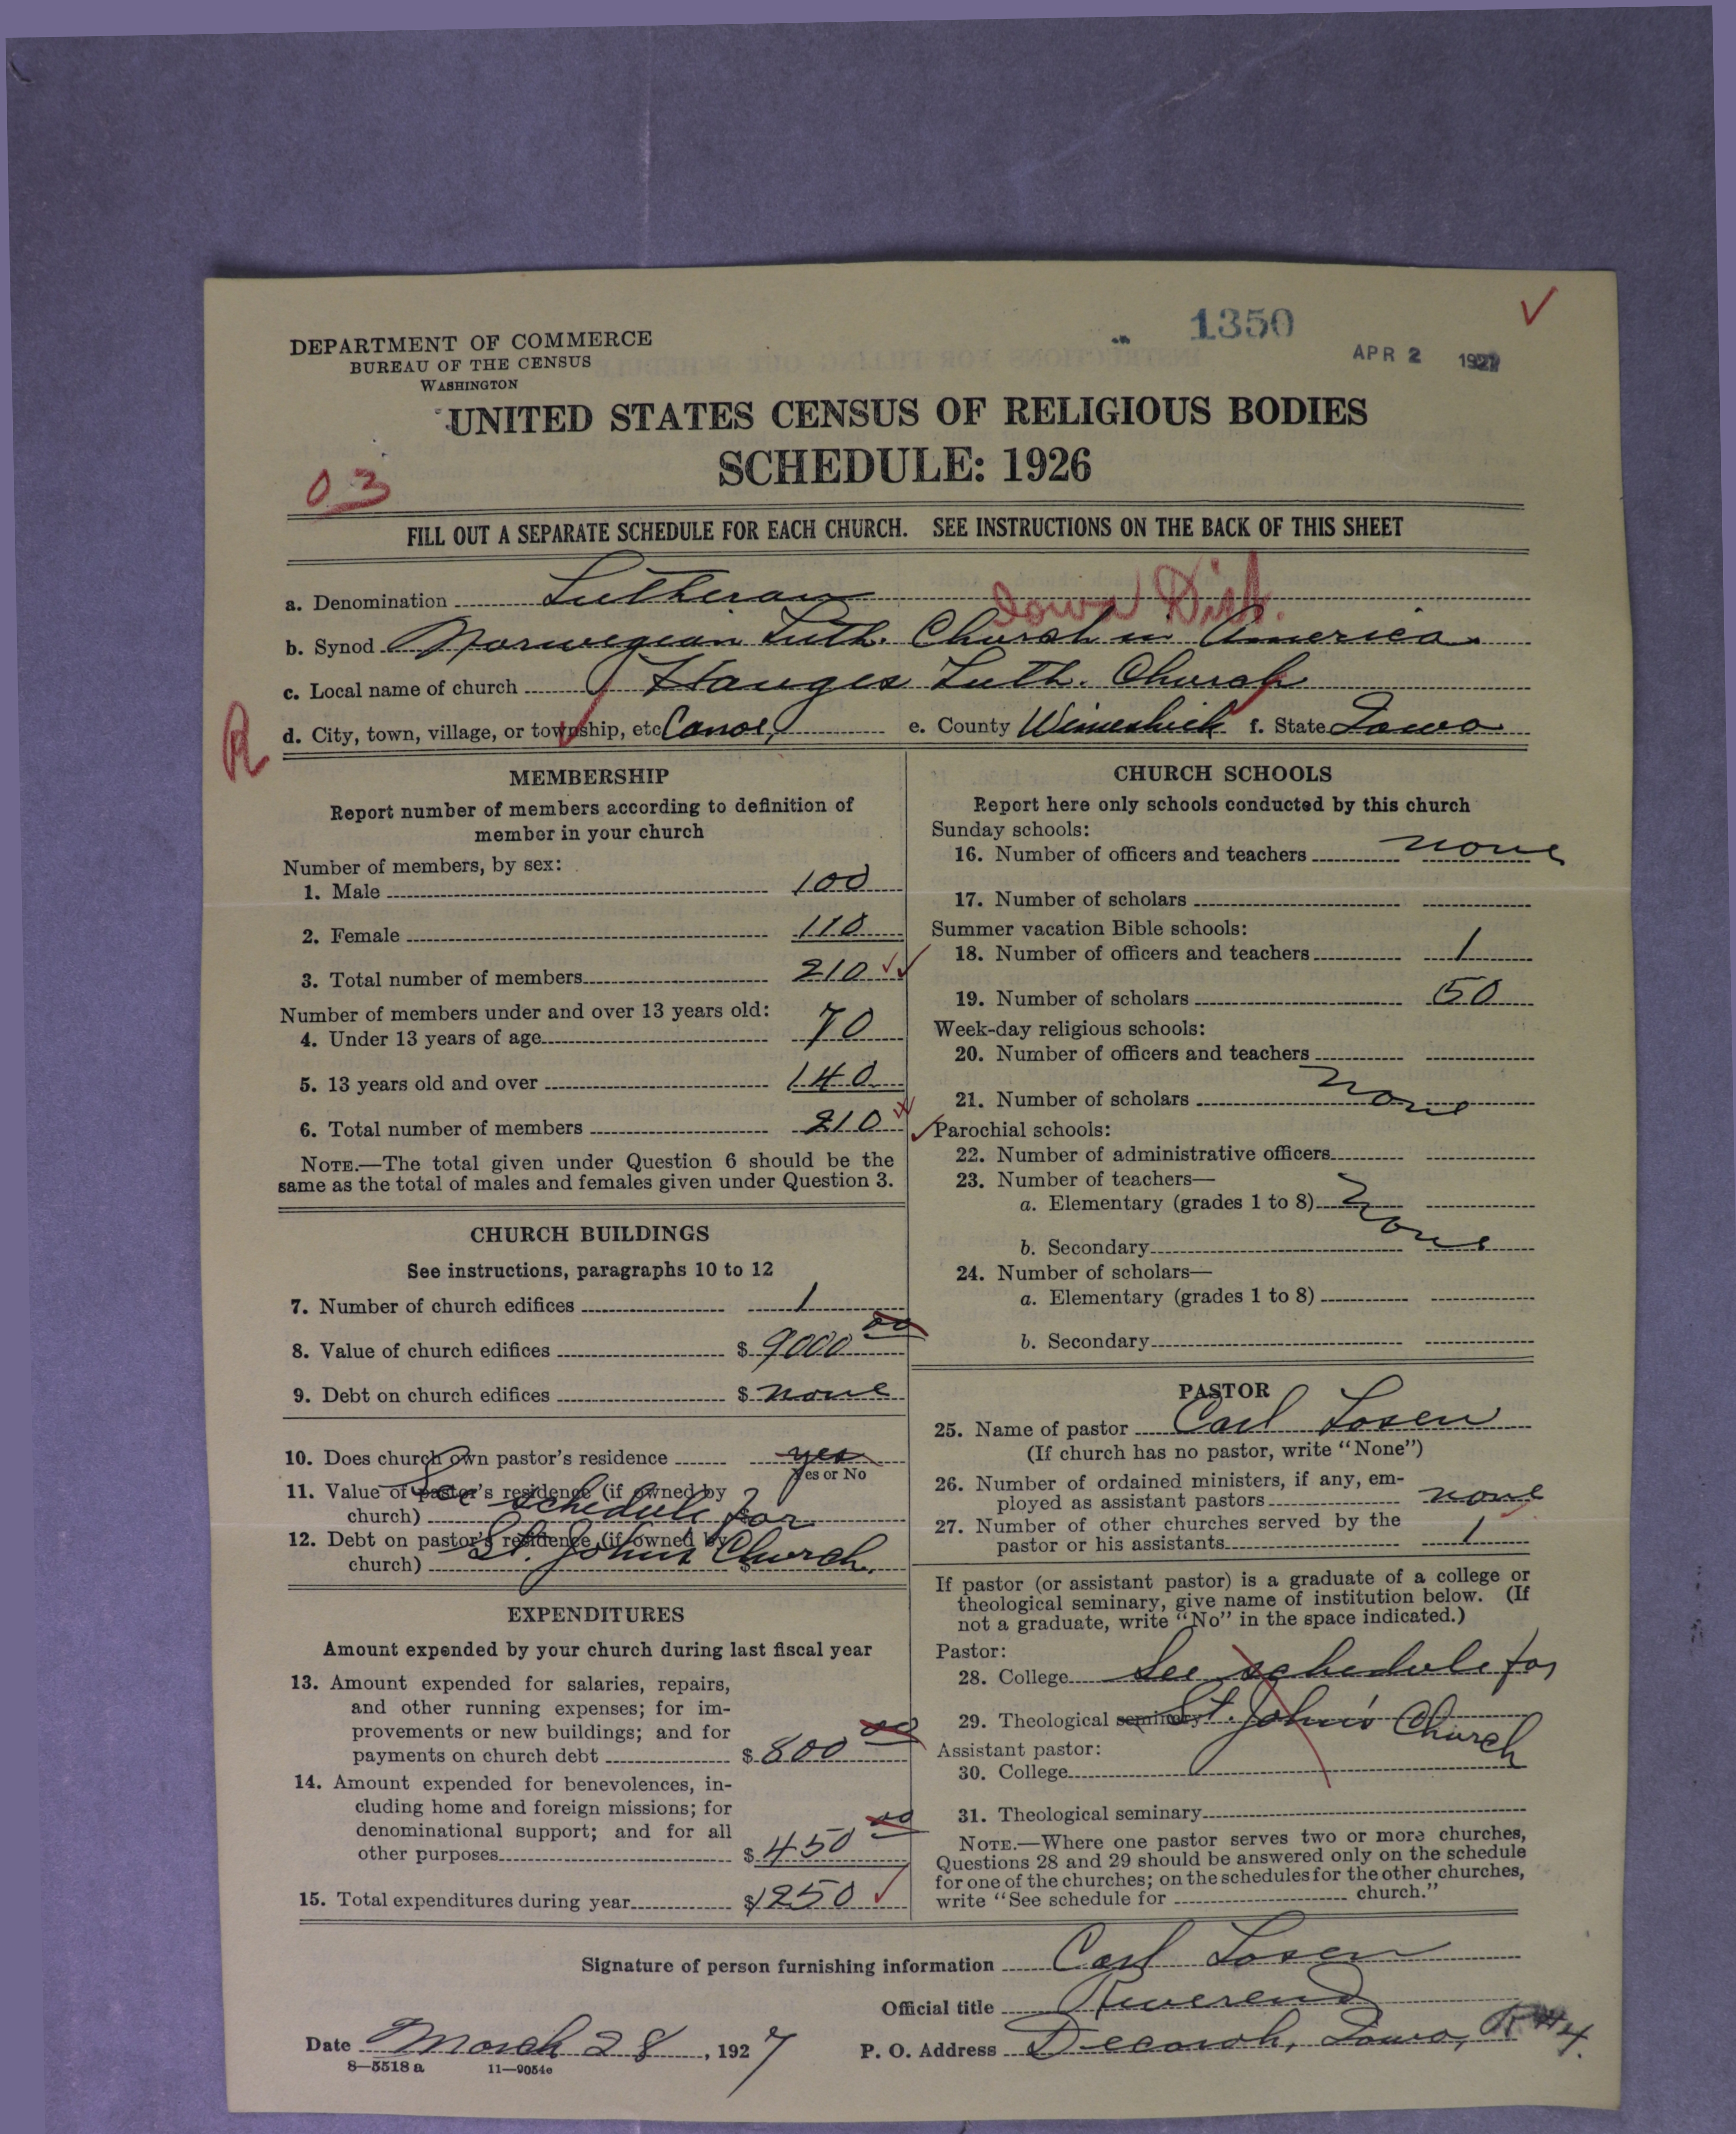 1350
DEPARTMENT OF COMMERCE
BUREAU OF THE CENSUS
WASHINGTON
APR 2 1927
UNITED STATES CENSUS OF RELIGIOUS BODIES
SCHEDULE: 1926
03
FILL OUT A SEPARATE SCHEDULE FOR EACH CHURCH. SEE INSTRUCTIONS ON THE BACK OF THIS SHEET
Iowa Dist.
a. Denomination Lutheran
b. Synod Norwegian Luth. Church in America
c. Local name of church Hauges Luth. Church
R
d. City, town, village, or township, etc Canoe, e. County Winneshiek f. State Iowa
MEMBERSHIP
Report number of members according to definition of
member in your church
Number of members, by sex:
1. Male 100
2. Female 110
3. Total number of members 210
Number of members under and over 13 years old:
4. Under 13 years of age 70
5. 13 years old and over 140
6. Total number of members 210
NOTE.—The total given under Question 6 should be the
same as the total of males and females given under Question 3.
CHURCH BUILDINGS
See instructions, paragraphs 10 to 12
7. Number of church edifices 1
8. Value of church edifices $ 9000 00
9. Debt on church edifices $ none
10. Does church own pastor's residence yes
Yes or No
11. Value of pastor's residence (if owned by
church) See schedule for
12. Debt on pastor's residence (if owned by
church) St. Johns Church.
EXPENDITURES
Amount expended by your church during last fiscal year
13. Amount expended for salaries, repairs,
and other running expenses; for im-
provements or new buildings; and for
payments on church debt $ 800 00
14. Amount expended for benevolences, in-
cluding home and foreign missions; for
denominational support; and for all
other purposes $ 450 00
15. Total expenditures during year $1250
CHURCH SCHOOLS
Report here only schools conducted by this church
Sunday schools:
16. Number of officers and teachers none
17. Number of scholars
Summer vacation Bible schools:
18. Number of officers and teachers 1
19. Number of scholars 50
Week-day religious schools:
20. Number of officers and teachers
21. Number of scholars none
Parochial schools:
22. Number of administrative officers
23. Number of teachers—
a. Elementary (grades 1 to 8) none
b. Secondary
24. Number of scholars—
a. Elementary (grades 1 to 8)
b. Secondary
PASTOR
25. Name of pastor Carl Losen
(If church has no pastor, write "None")
26. Number of ordained ministers, if any, em-
ployed as assistant pastors none
27. Number of other churches served by the
pastor or his assistants 1
If pastor (or assistant pastor) is a graduate of a college or
theological seminary, give name of institution below. (If
not a graduate, write "No" in the space indicated.)
Pastor:
28. College See schedule for
29. Theological seminary St. John's Church
Assistant pastor:
30. College
31. Theological seminary
NOTE.—Where one pastor serves two or more churches,
Questions 28 and 29 should be answered only on the schedule
for one of the churches; on the schedules for the other churches,
write "See schedule for church."
Signature of person furnishing information Carl Losen
Official title Reverend
Date March 28, 1927 P. O. Address Decorah, Iowa, R#4.
8—5518 a 11—9054e